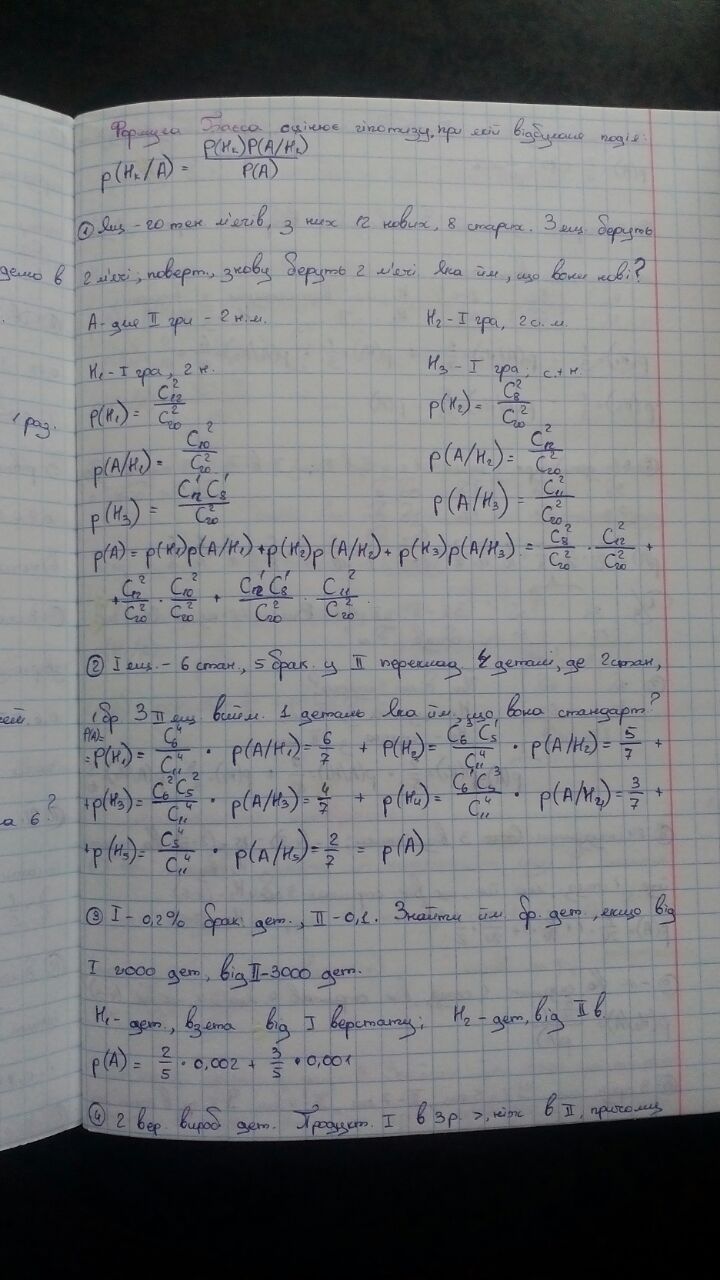 Формула Баєса оцінює гіпотизу, при якій відбулася подія:
p(Hₖ/A) = P(Hₖ)P(A/Hₖ) / P(A)
① Ящ - 20 тен. м'ячів, з них 12 нових, 8 старих. З ящ. беруть
демо в
2 м'ячі, поверт., знову беруть 2 м'ячі. Яка йм., що вони нові?
A - для II гри - 2 н.м.
H₂ - I гра, 2 с. м.
H₁ - I гра, 2 н.
H₃ - I гра, с.+ н.
p(H₁) = C₁₂² / C₂₀²
p(H₂) = C₈² / C₂₀²
1 раз.
p(A/H₁) = C₁₀² / C₂₀²
p(A/H₂) = C₁₂² / C₂₀²
p(H₃) = C₁₂¹ C₈¹ / C₂₀²
p(A/H₃) = C₁₁² / C₂₀²
p(A) = p(H₁)p(A/H₁) + p(H₂)p(A/H₂) + p(H₃)p(A/H₃) = C₈² / C₂₀² · C₁₂² / C₂₀² +
+ C₁₂² / C₂₀² · C₁₀² / C₂₀² + C₁₂¹ C₈¹ / C₂₀² · C₁₁² / C₂₀².
② I ящ. - 6 стан., 5 брак. у II переклад. 4 деталі, де 2 стан,
1 бр. З II ящ. взяли 1 деталь. Яка йм., що вона стандарт?
p(A)=
= p(H₁) = C₆⁴ / C₁₁⁴ · p(A/H₁) = 6/7 + p(H₂) = C₆³ C₅¹ / C₁₁⁴ · p(A/H₂) = 5/7 +
+ p(H₃) = C₆² C₅² / C₁₁⁴ · p(A/H₃) = 4/7 + p(H₄) = C₆¹ C₅³ / C₁₁⁴ · p(A/H₄) = 3/7 +
а 6?
+ p(H₅) = C₅⁴ / C₁₁⁴ · p(A/H₅) = 2/7 = p(A)
③ I - 0,2% брак. дет., II - 0,1. Знайти йм. бр. дет., якщо від
I 2000 дет., від II - 3000 дет.
H₁ - дет., взята від I верстату; H₂ - дет, від II в.
p(A) = 2/5 · 0,002 + 3/5 · 0,001
④ 2 вер. вироб. дет. Продукт. I в 3 р. >, ніж в II, причому